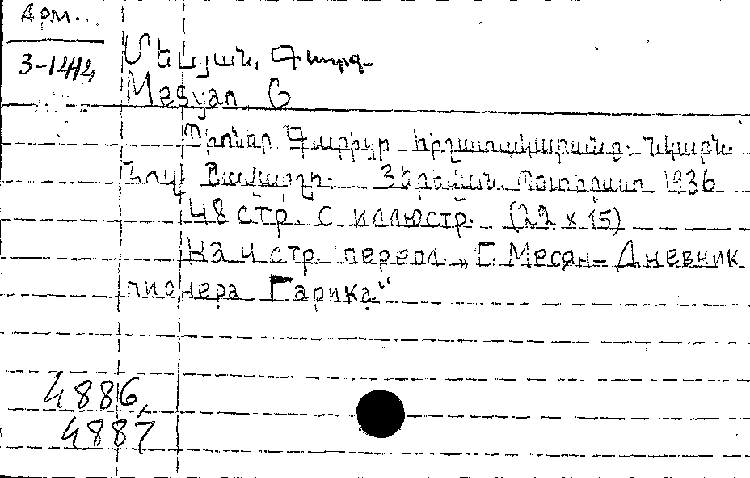 Арм...
3-1414
Մեսյան, Գևորգ
Mesyan G
Պիոներ Գարիկի հիշատակարանը. Նկարն
Երևան Պետհրատ 1936
48 стр. с иллюстр. (22 x 15)
На 4 стр. перепл „Г. Месян - Дневник
пионера Гарика“
4886,
4887